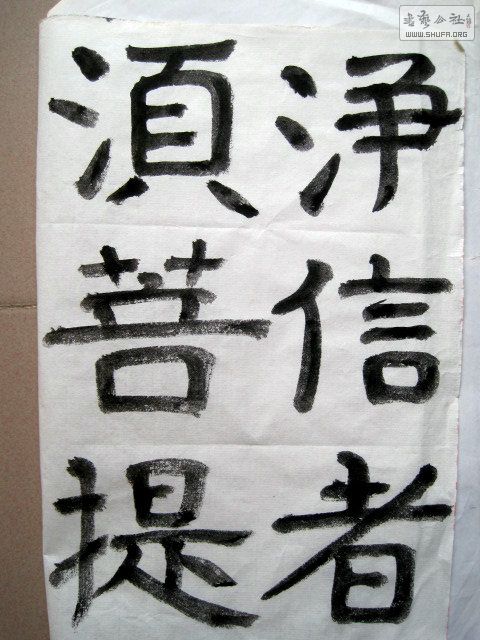 浄信者
湏菩提
書藝公社
WWW.SHUFA.ORG